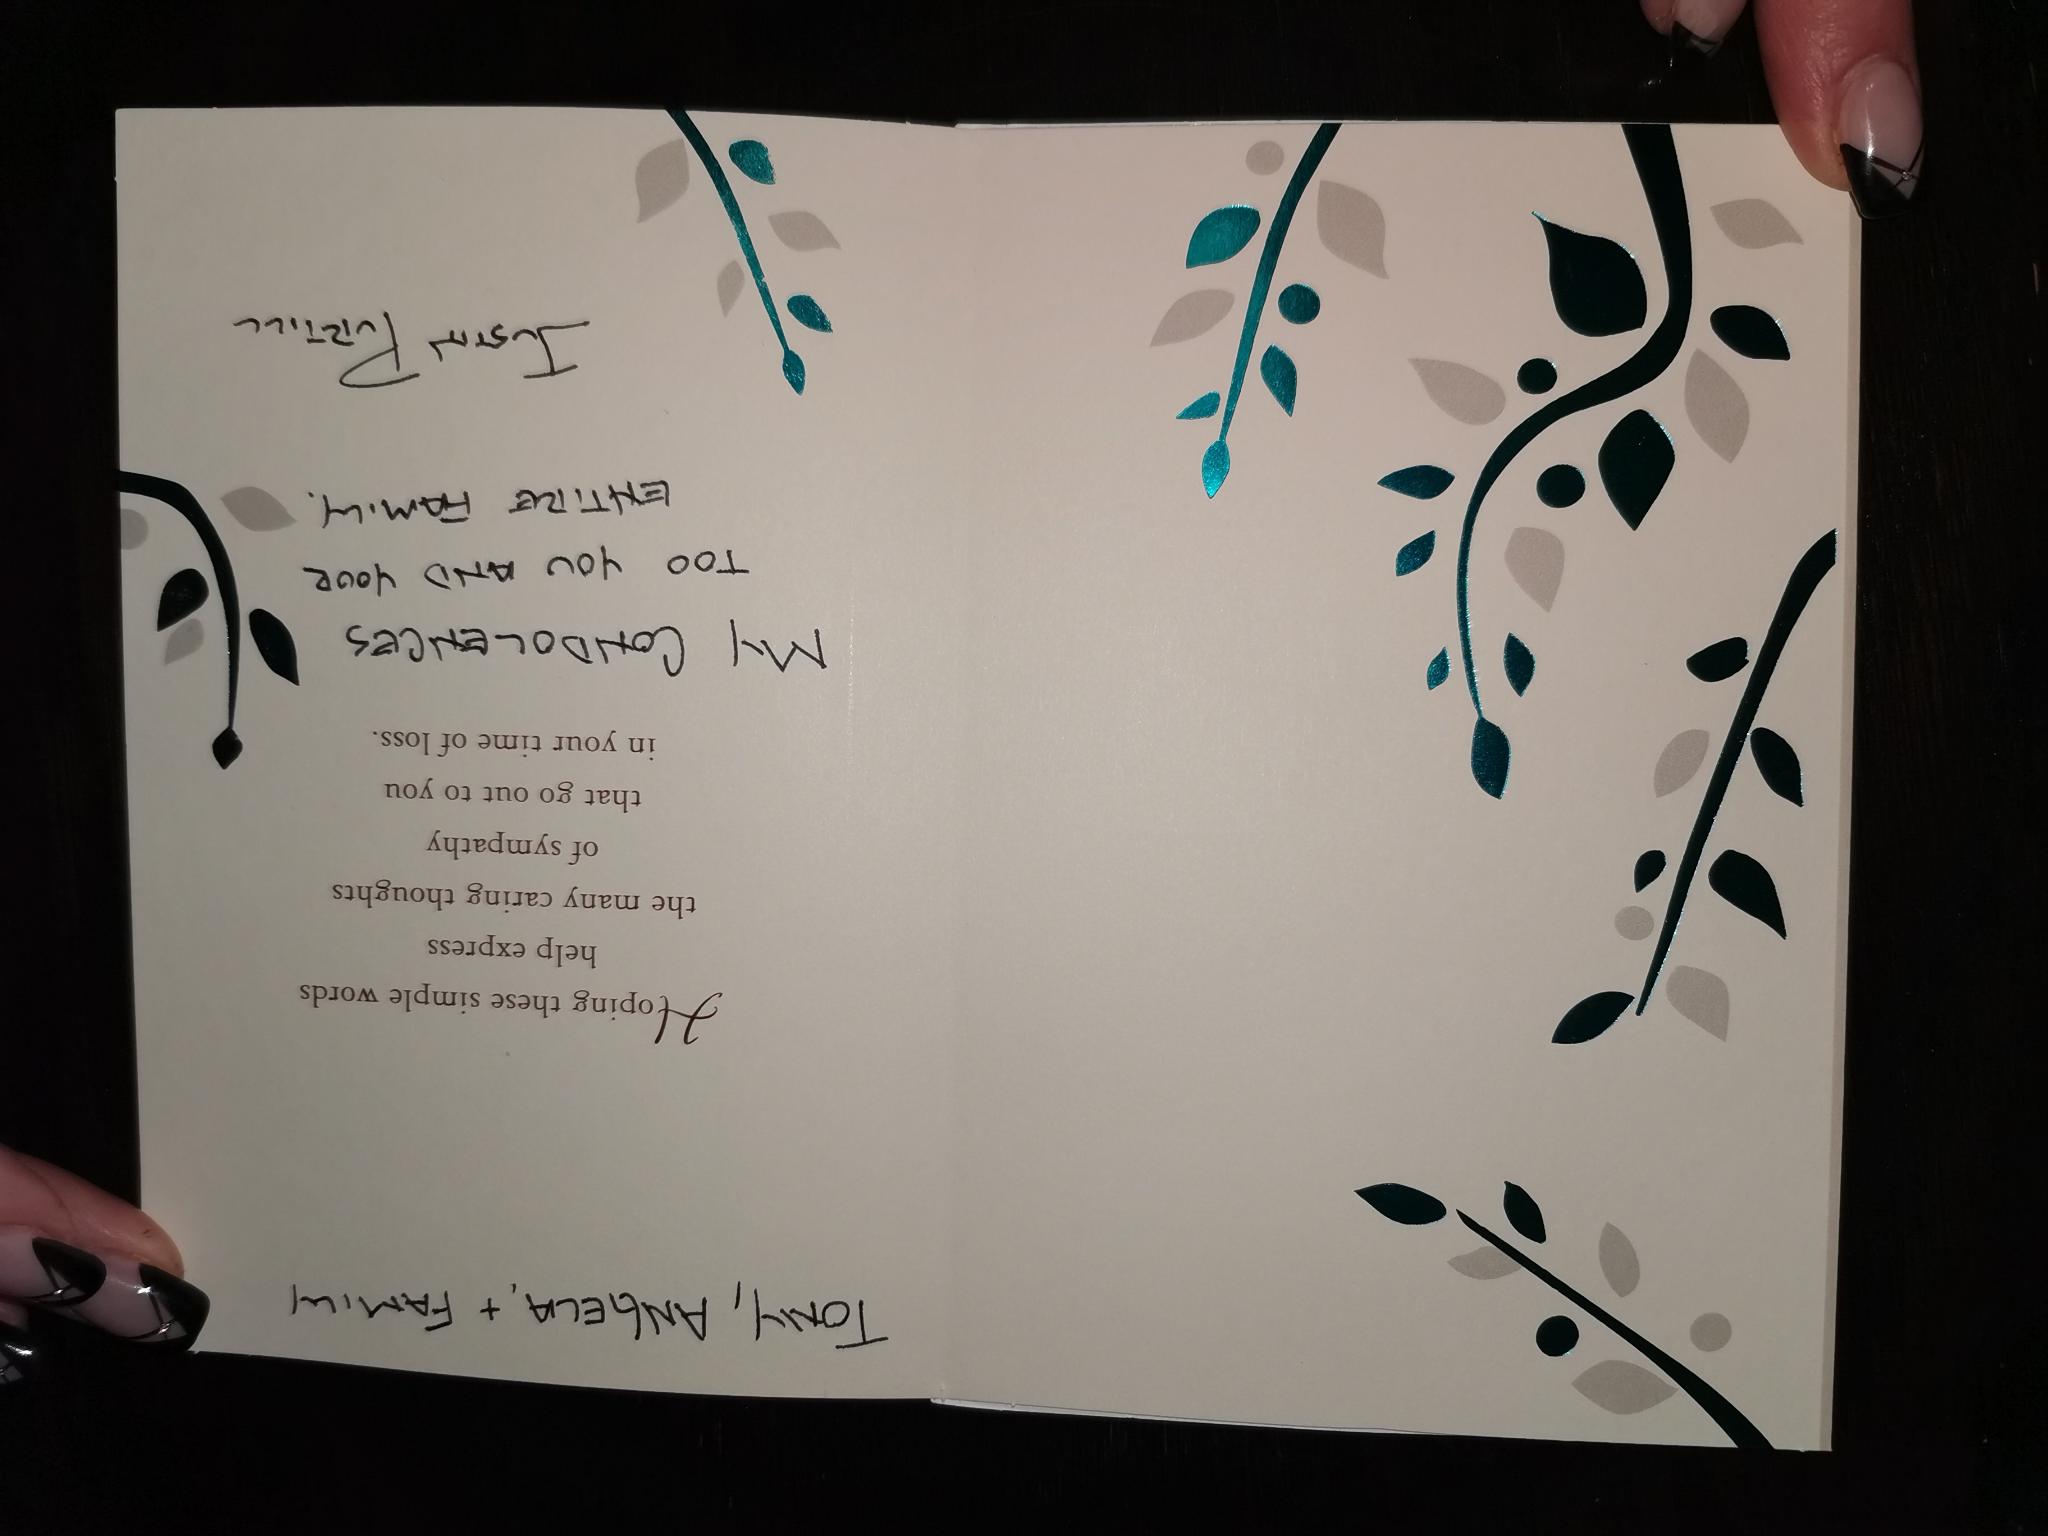 TONY, ANGELA, + FAMILY
Hoping these simple words
help express
the many caring thoughts
of sympathy
that go out to you
in your time of loss.
MY CONDOLENCES
TOO YOU AND YOUR
ENTIRE FAMILY.
JUSTIN PURTILL